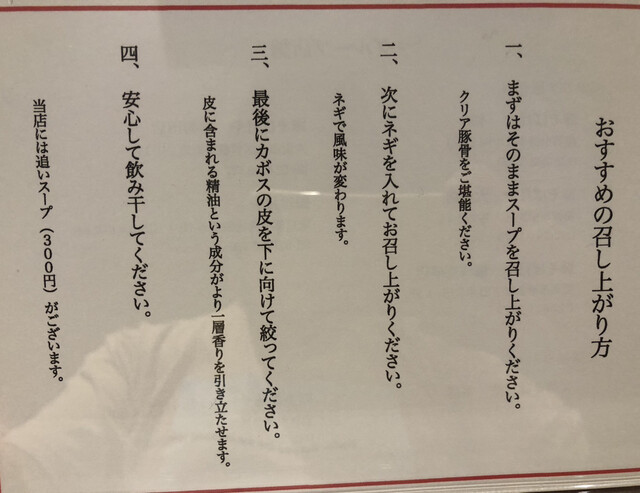 おすすめの召し上がり方
一、まずはそのままスープを召し上がりください。
クリア豚骨をご堪能ください。
二、次にネギを入れてお召し上がりください。
ネギで風味が変わります。
三、最後にカボスの皮を下に向けて絞ってください。
皮に含まれる精油という成分がより一層香りを引き立たせます。
四、安心して飲み干してください。
当店には追いスープ（３００円）がございます。